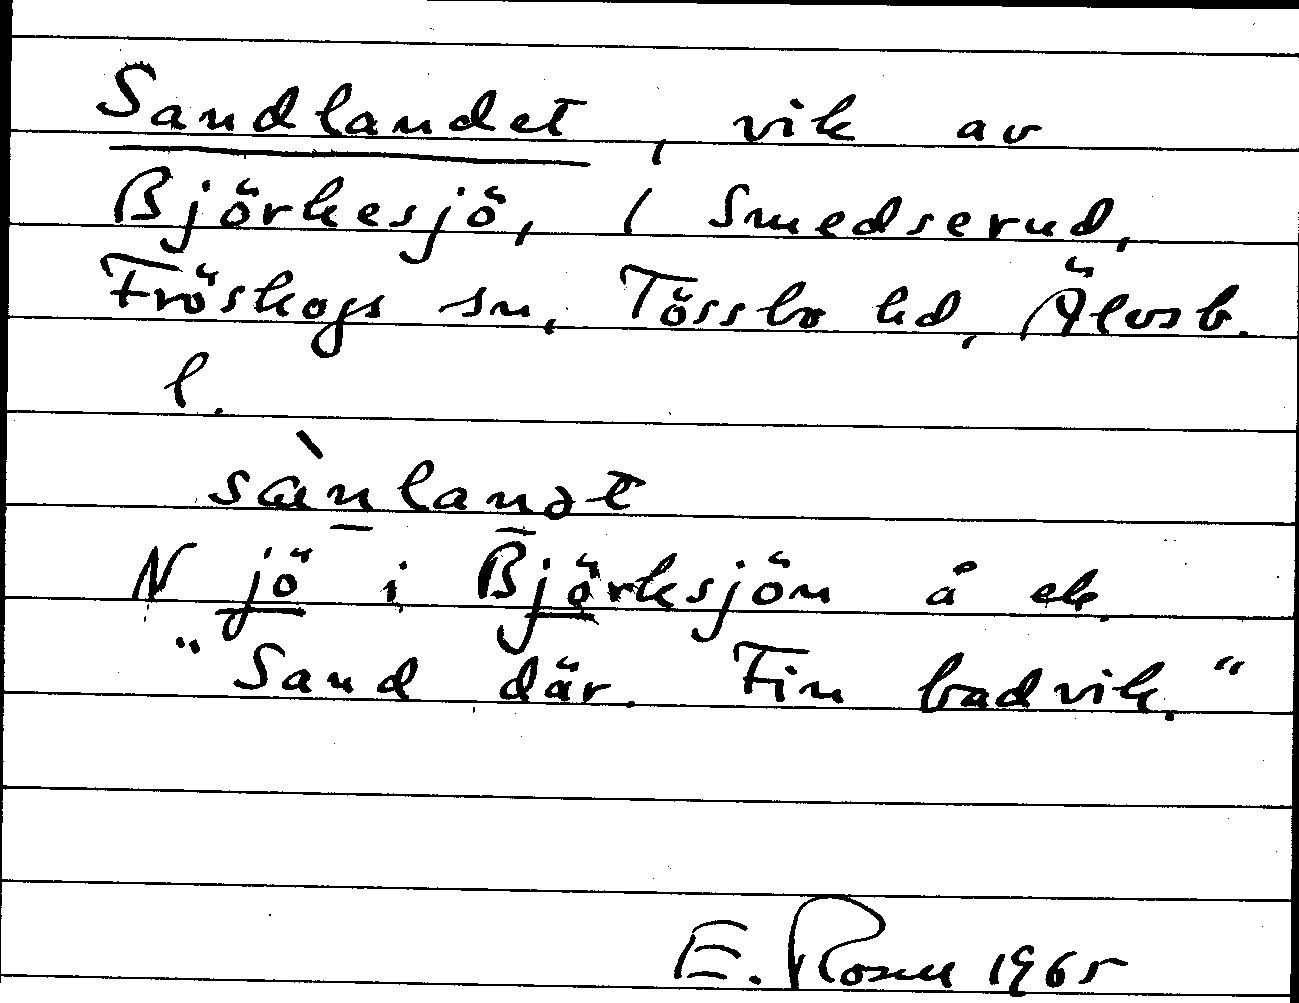 Sandlandet, vik av
Björkesjö, 1 Smedserud,
Fröskogs sn, Tössbo hd, Älvsb.
l.
sànlandət
N jö i Björksjön å ek.
"Sand där. Fin badvik."
E. Rosell 1965